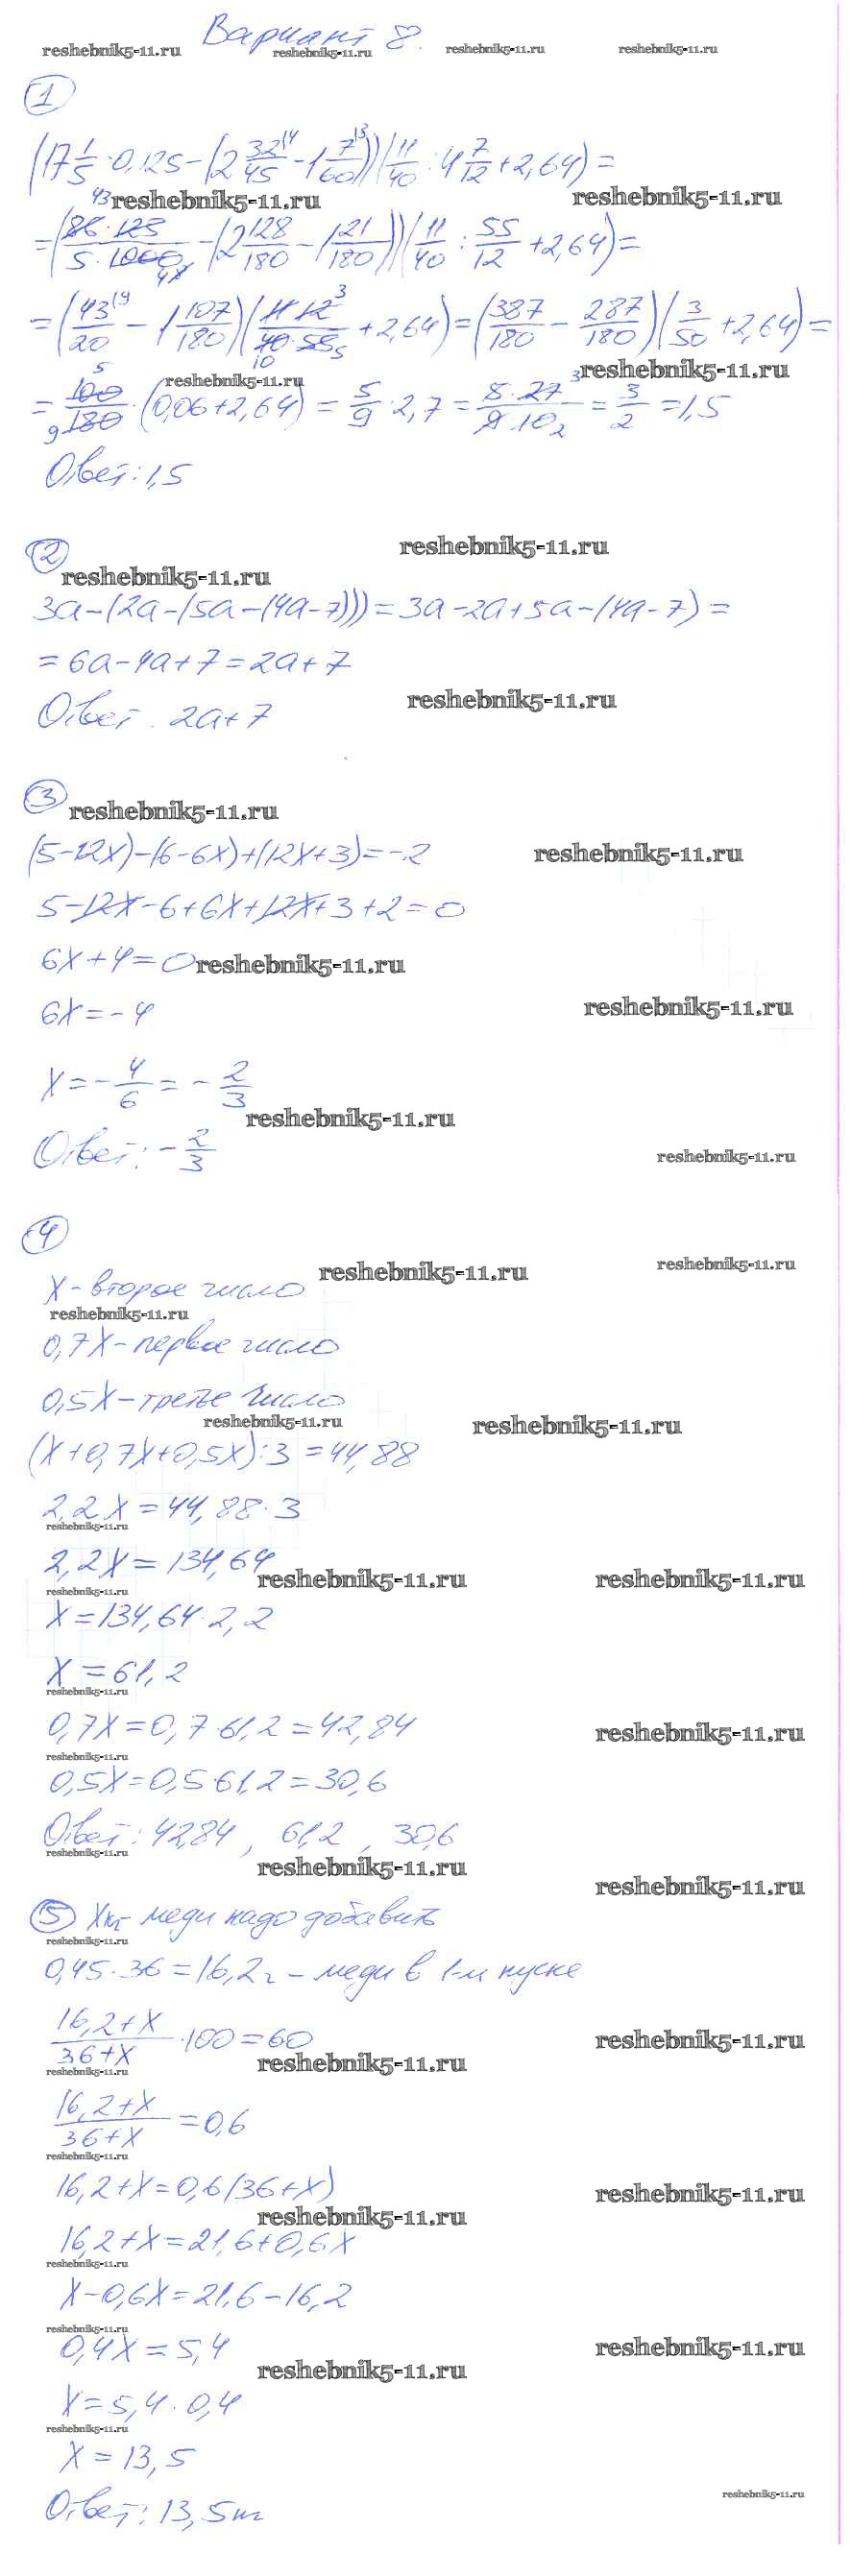 Вариант 8.
reshebnik5-11.ru reshebnik5-11.ru reshebnik5-11.ru reshebnik5-11.ru
1
(17 1/5 · 0,125 - (2 32/45 - 1 7/60))(11/40 : 4 7/12 + 2,64) =
reshebnik5-11.ru reshebnik5-11.ru
= (86·125/5·1000 - (2 128/180 - 1 21/180))(11/40 : 55/12 + 2,64) =
= (43/20 - 1 107/180)(11·12/40·55 + 2,64) = (387/180 - 287/180)(3/50 + 2,64) =
reshebnik5-11.ru reshebnik5-11.ru
= 100/180 · (0,06 + 2,64) = 5/9 · 2,7 = 5·27/9·10 = 3/2 = 1,5
Ответ: 1,5
2
reshebnik5-11.ru
reshebnik5-11.ru
3a-(2a-(5a-(4a-7)))=3a-2a+5a-(4a-7)=
=6a-4a+7=2a+7
reshebnik5-11.ru
Ответ. 2a+7
3
reshebnik5-11.ru
(5-12x)-(6-6x)+(12x+3)=-2
reshebnik5-11.ru
5-12x-6+6x+12x+3+2=0
6x+4=0
reshebnik5-11.ru
6x=-4
reshebnik5-11.ru
x=-4/6=-2/3
reshebnik5-11.ru
Ответ: -2/3
reshebnik5-11.ru
4
x-второе число
reshebnik5-11.ru reshebnik5-11.ru
reshebnik5-11.ru
0,7x-первое число
0,5x-третье число
reshebnik5-11.ru reshebnik5-11.ru
(x+0,7x+0,5x):3=44,88
2,2x=44,88·3
reshebnik5-11.ru
2,2x=134,64
reshebnik5-11.ru reshebnik5-11.ru
reshebnik5-11.ru
x=134,64·2,2
x=61,2
reshebnik5-11.ru
0,7x=0,7·61,2=42,84
reshebnik5-11.ru
reshebnik5-11.ru
0,5x=0,5·61,2=30,6
Ответ: 42,84, 61,2, 30,6
reshebnik5-11.ru
reshebnik5-11.ru reshebnik5-11.ru
5 x - меди надо добавить
reshebnik5-11.ru
0,45·36=16,2 - меди в 1-м куске
16,2+x/36+x ·100=60
reshebnik5-11.ru reshebnik5-11.ru
reshebnik5-11.ru
16,2+x/36+x=0,6
reshebnik5-11.ru
16,2+x=0,6(36+x)
reshebnik5-11.ru reshebnik5-11.ru
16,2+x=21,6+0,6x
reshebnik5-11.ru
x-0,6x=21,6-16,2
reshebnik5-11.ru
0,4x=5,4
reshebnik5-11.ru reshebnik5-11.ru
x=5,4·0,4
reshebnik5-11.ru
x=13,5
reshebnik5-11.ru
Ответ: 13,5